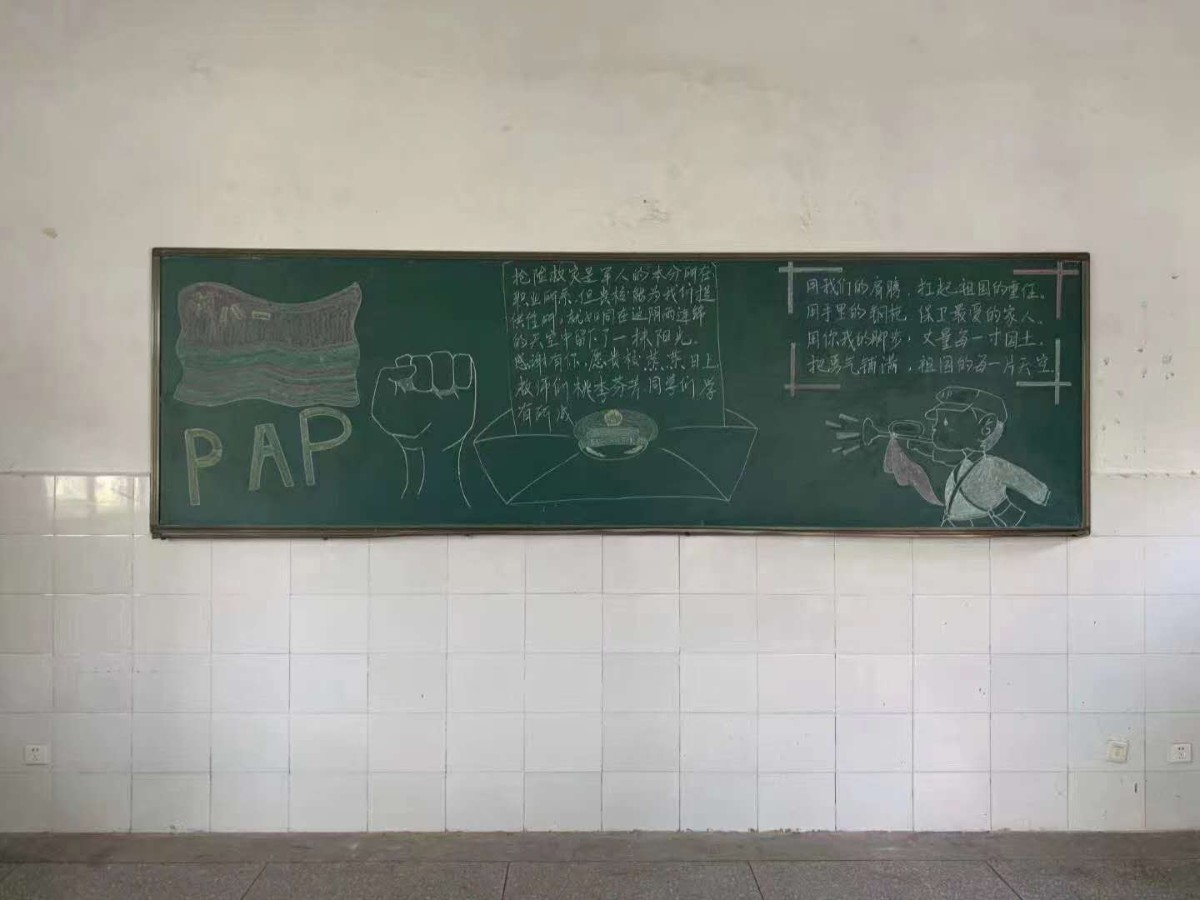 PAP
抢险救灾是军人的本分所在
职业所系,但贵校能为我们提
供住所,就如同在这阴雨连绵
的天空中留下了一抹阳光。
感谢有你,愿贵校蒸蒸日上
教师们桃李芬芳同学们学
有所成
用我们的肩膀,扛起祖国的重任。
用手里的钢枪,保卫最爱的家人。
用你我的脚步,丈量每一寸国土。
把勇气铺满,祖国的每一片天空